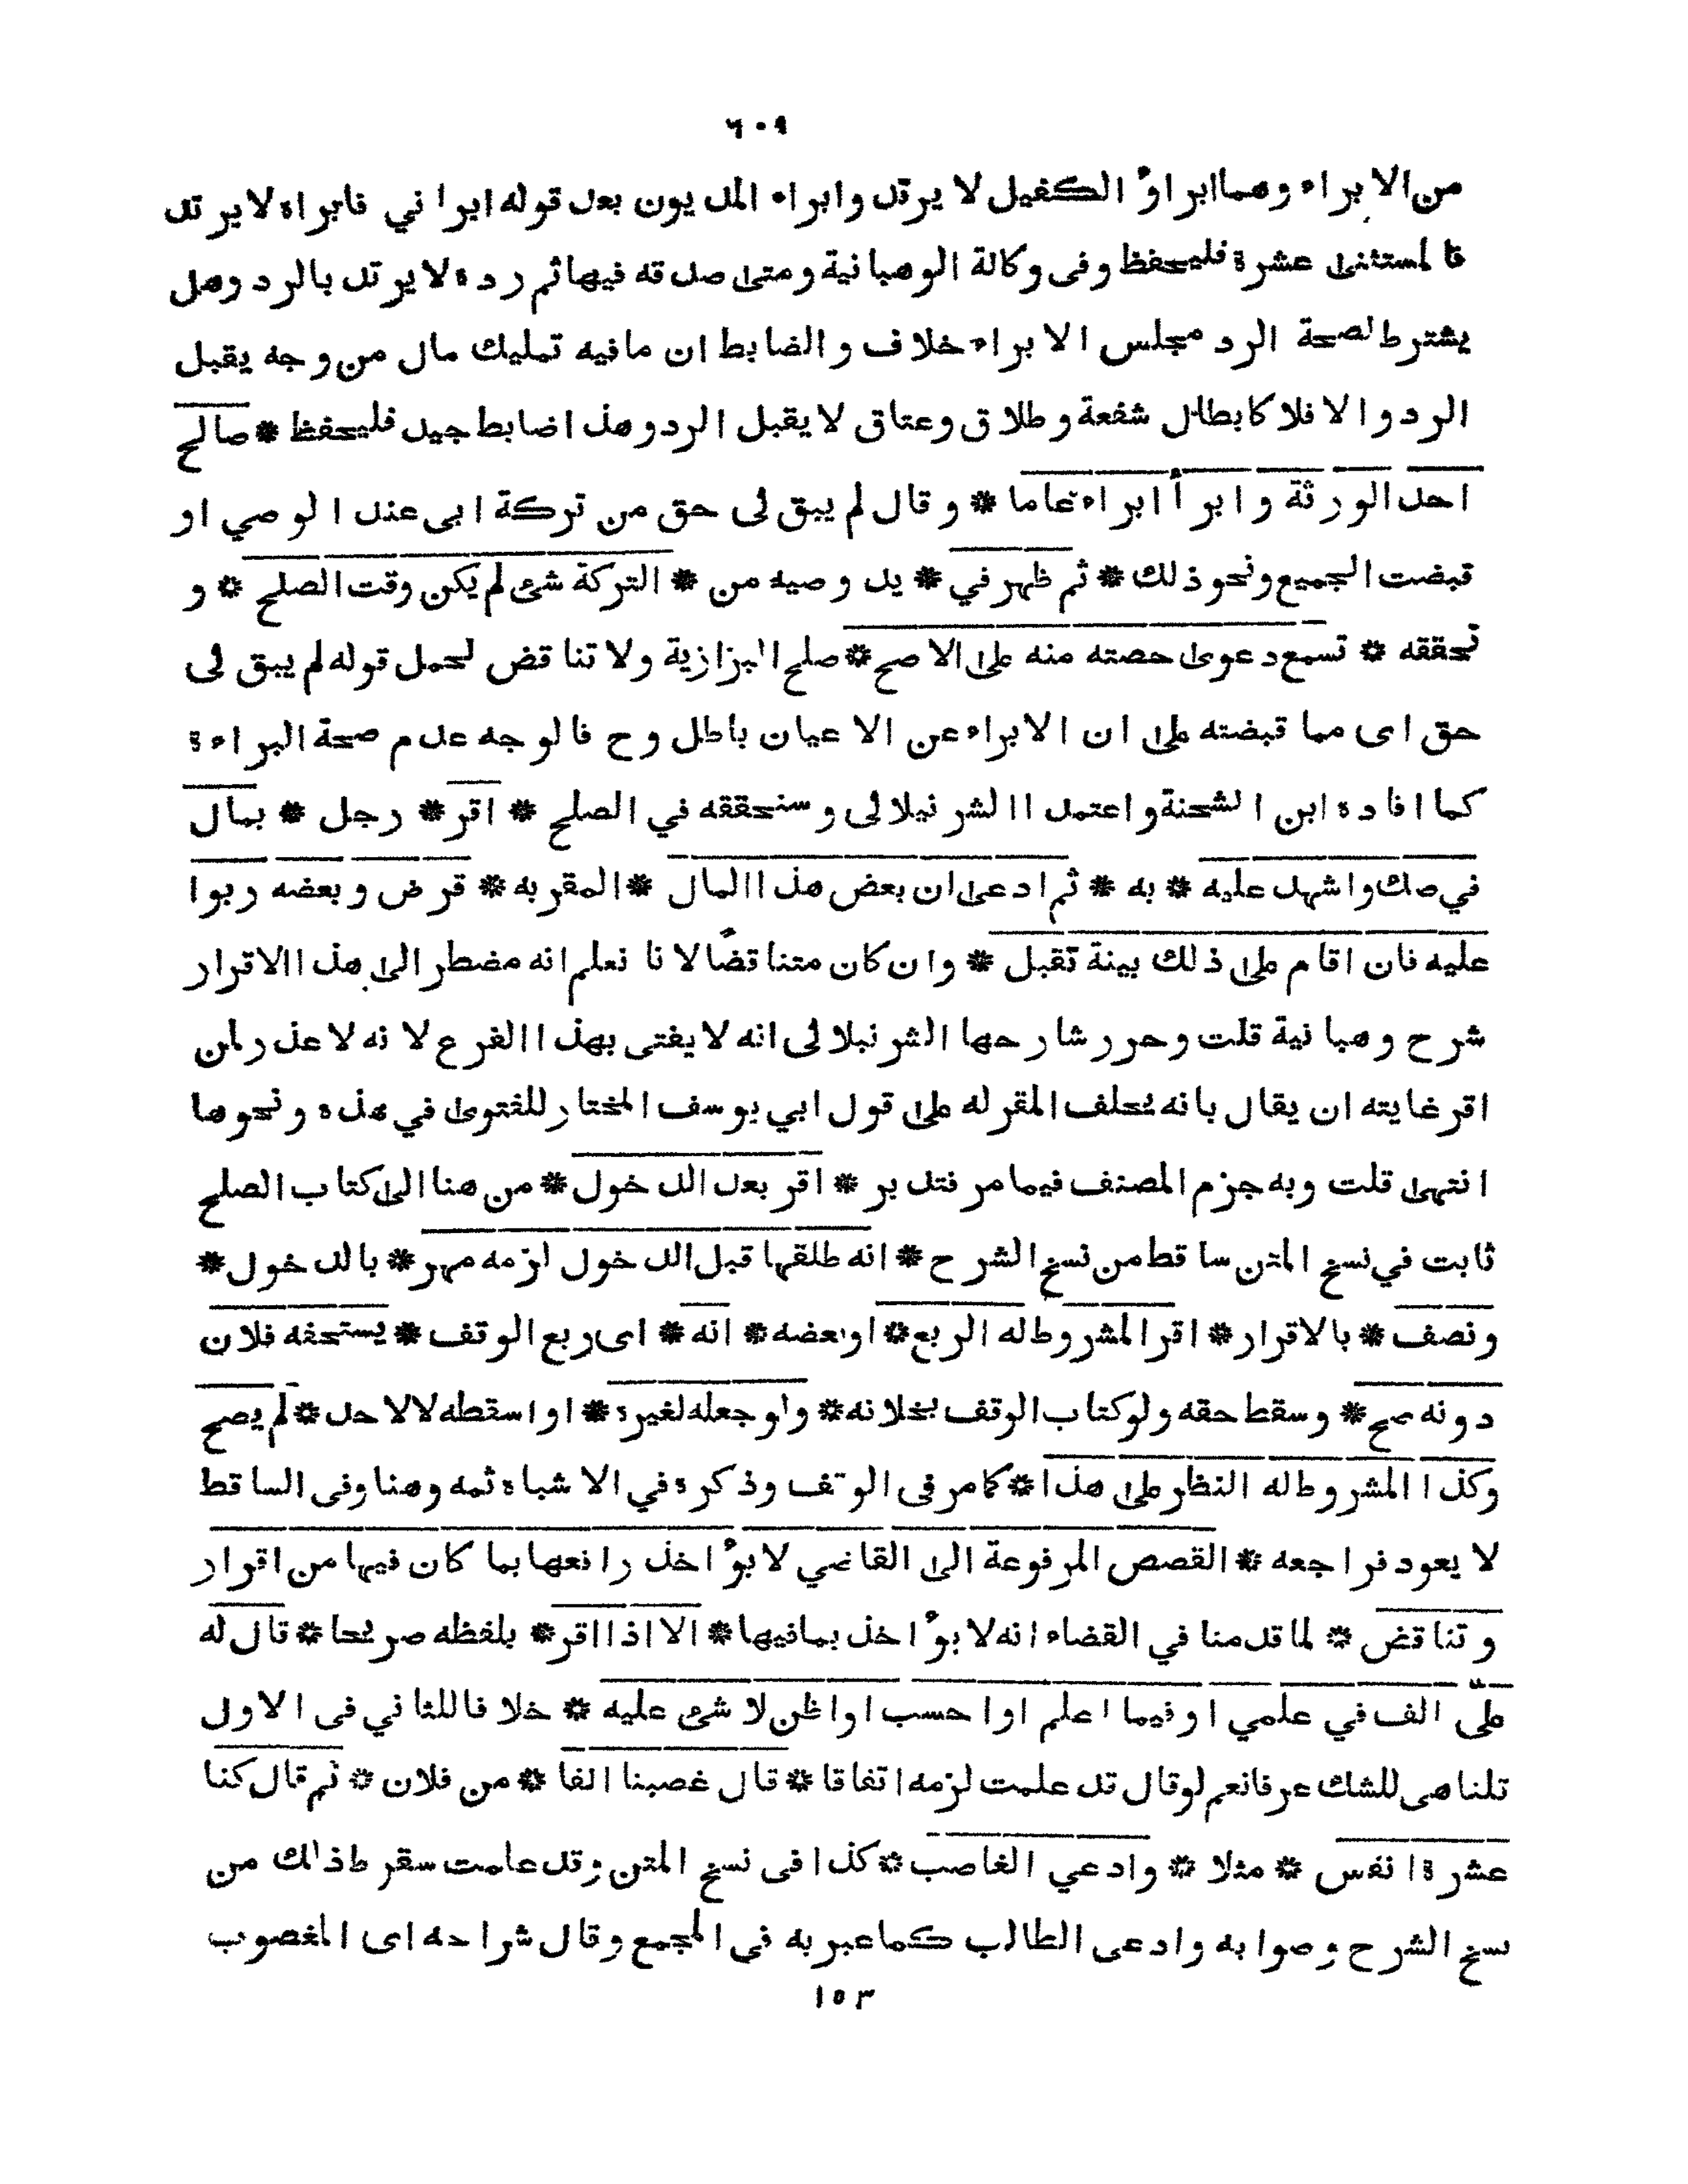 ٦٠٩
من الابراء وهما ابراؤ الكفيل لا يرتد وابراء المديون بعد قوله ابراني فابراه لا يرتد
فالمستثنى عشرة فليحفظ وفى وكالة الوهبانية ومتى صدقه فيها ثم رده لا يرتد بالرد وهل
يشترط لصحة الرد مجلس الابراء خلاف والضابط ان ما فيه تمليك مال من وجه يقبل
الرد والا فلا كابطال شفعة وطلاق وعتاق لا يقبل الرد وهذا ضابط جيد فليحفظ * صالح
احد الورثة وابرأ ابراء عاما * وقال لم يبق لى حق من تركة ابى عند الوصي او
قبضت الجميع ونحو ذلك * ثم ظهر في * يد وصيه من * التركة شئ لم يكن وقت الصلح * و
تحققه * تسمع دعوى حصته منه على الاصح * صلح البزازية ولا تناقض لحمل قوله لم يبق لى
حق اى مما قبضته على ان الابراء عن الاعيان باطل وح فالوجه عدم صحة البراءة
كما افاده ابن الشحنة واعتمد االشرنبلالى وسنحققه في الصلح * اقر * رجل * بمال
في صك واشهد عليه * به * ثم ادعى ان بعض هذا المال * المقر به * قرض وبعضه ربوا
عليه فان اقام على ذلك بينة تقبل * وان كان متناقضًا لانا نعلم انه مضطر الى هذا الاقرار
شرح وهبانية قلت وحرر شارحها الشرنبلالى انه لا يفتى بهذا الفرع لانه لا عذر لمن
اقر غايته ان يقال بانه يحلف المقر له على قول ابي يوسف المختار للفتوى في هذه ونحوها
انتهى قلت وبه جزم المصنف فيما مر فتدبر * اقر بعد الدخول * من هنا الى كتاب الصلح
ثابت في نسخ المتن ساقط من نسخ الشرح * انه طلقها قبل الدخول لزمه مهر * بالدخول *
ونصف * بالاقرار * اقر المشروط له الربع * او بعضه * انه * اى ربع الوقف * يستحقه فلان
دونه صح * وسقط حقه ولو كتاب الوقف بخلافه * ولو جعله لغيره * او اسقطه لا لاحد * لم يصح
وكذا المشروط له النظر على هذا * كما مر فى الوقف وذكره في الاشباه ثمه وهنا وفى الساقط
لا يعود فراجعه * القصص المرفوعة الى القاضي لا يؤاخذ رافعها بما كان فيها من اقرار
وتناقض * لما قدمنا في القضاء انه لا يؤاخذ بما فيها * الا اذا اقر * بلفظه صريحا * قال له
علىّ الف في علمي او فيما اعلم او احسب او اظن لا شئ عليه * خلافا للثاني فى الاول
قلنا هى للشك عرفا نعم لو قال قد علمت لزمه اتفاقا * قال غصبنا الفا * من فلان * ثم قال كنا
عشرة انفس * مثلا * وادعي الغاصب * كذا فى نسخ المتن وقد علمت سقوط ذلك من
نسخ الشرح وصوابه وادعى الطالب كما عبر به فى المجمع وقال شراحه اى المغصوب
١٥٣